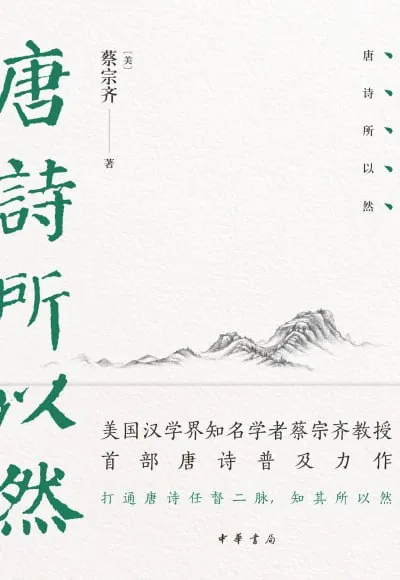 唐詩所以然
[美]
蔡宗齐
著
唐诗所以然
美国汉学界知名学者蔡宗齐教授
首部唐诗普及力作
打通唐诗任督二脉，知其所以然
中華書局